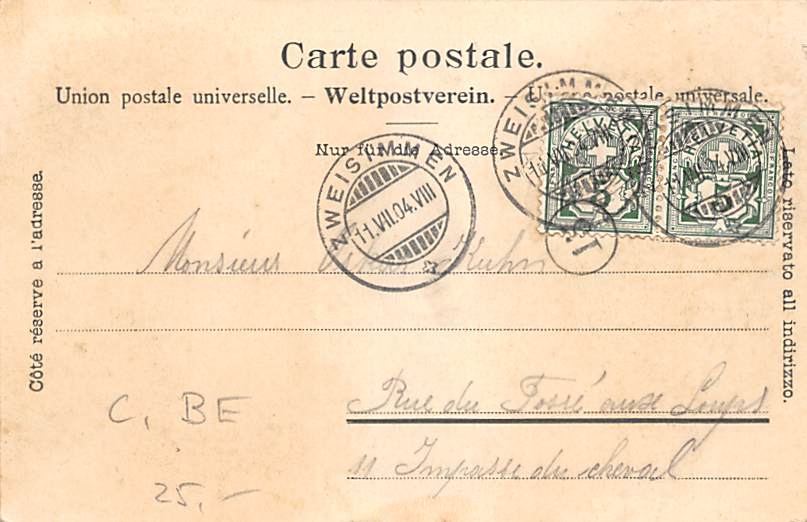 Carte postale.
Union postale universelle. – Weltpostverein. – Unione postale universale.
Nur für die Adresse.
Côté réservé a l'adresse.
Lato riservato all indirizzo.
ZWEISIMMEN
11.VII.04.VIII
ZWEISIMMEN
HELVETIA
5
HELVETIA
5
Monsieur Kuhn
Rue du Fossé aux Loups
11 Impasse du cheval
C, BE
25,-